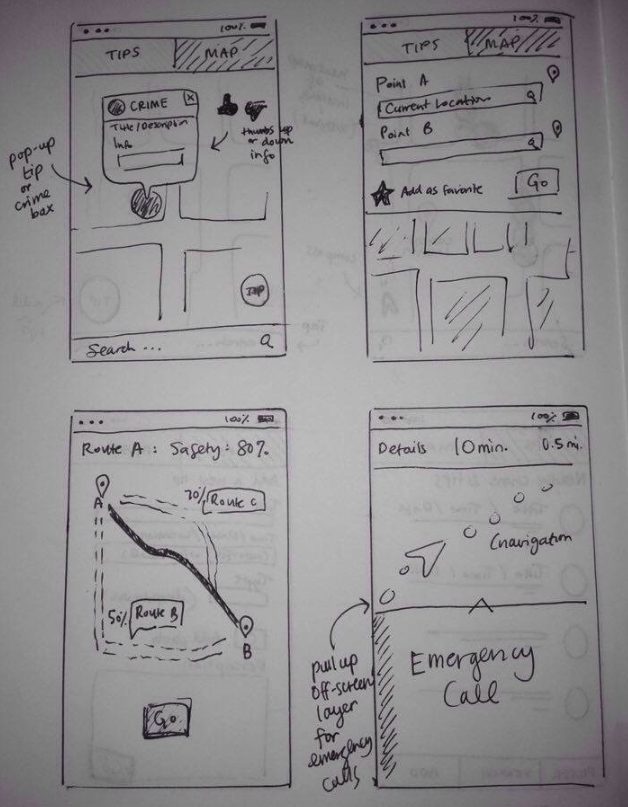 100%
TIPS
MAP
CRIME
X
Title/Description
Info
thumbs up
or down
info
pop-up
tip
or
crime
box
TIP
Search ...
100%
TIPS
MAP
Point A
Current Location
Point B
Add as favorite
Go
100%
Route A : Safety: 80%
A
70%
Route C
50%
Route B
B
Go
100%
Details 10 min. 0.5 mi.
(navigation
pull up
off-screen
layer
for
emergency
calls
Emergency
Call